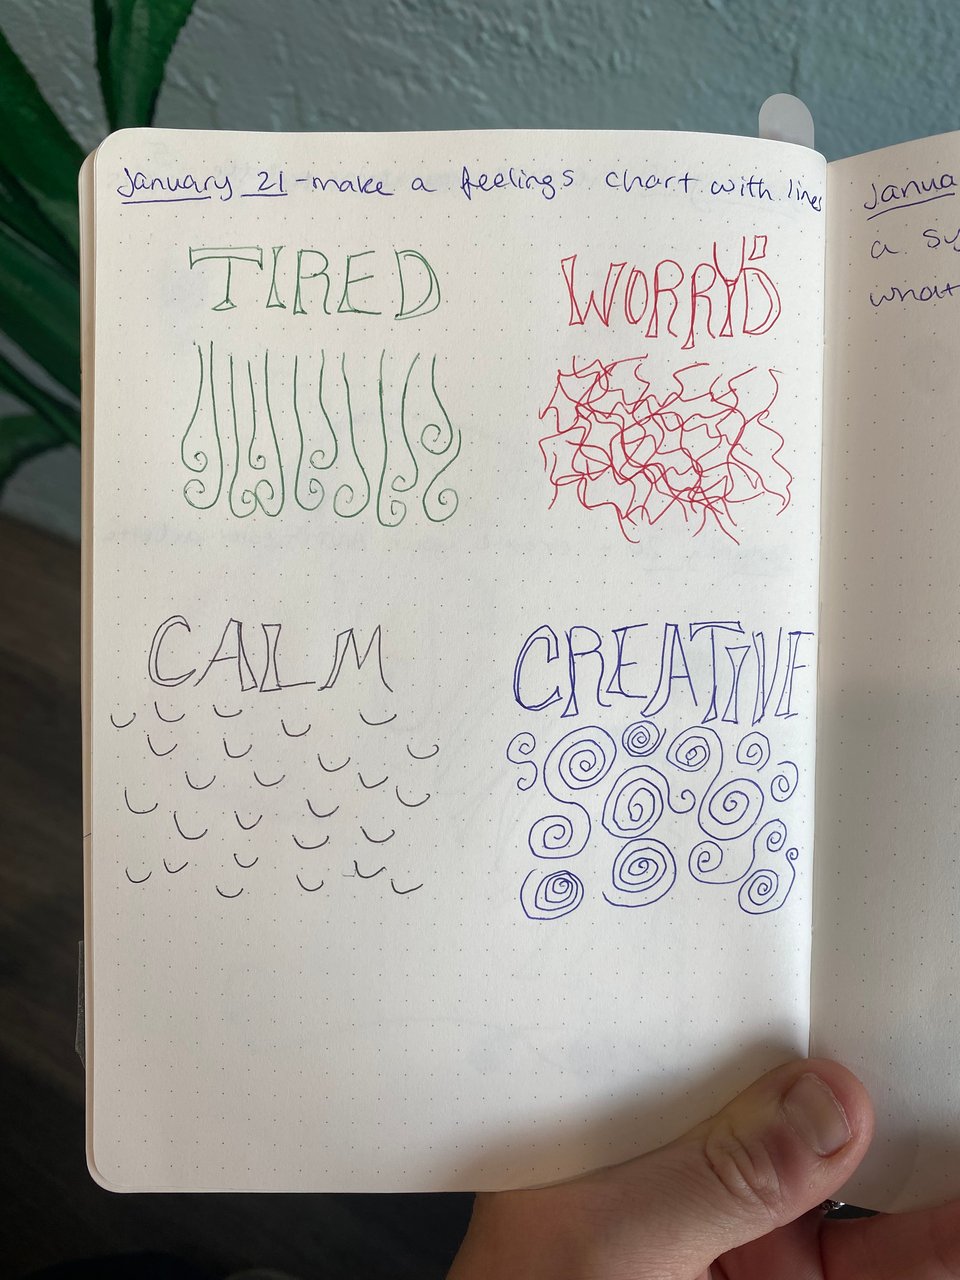 January 21 - make a feelings chart with lines
TIRED
WORRY'D
CALM
CREATIVE
Janua
a sy
what